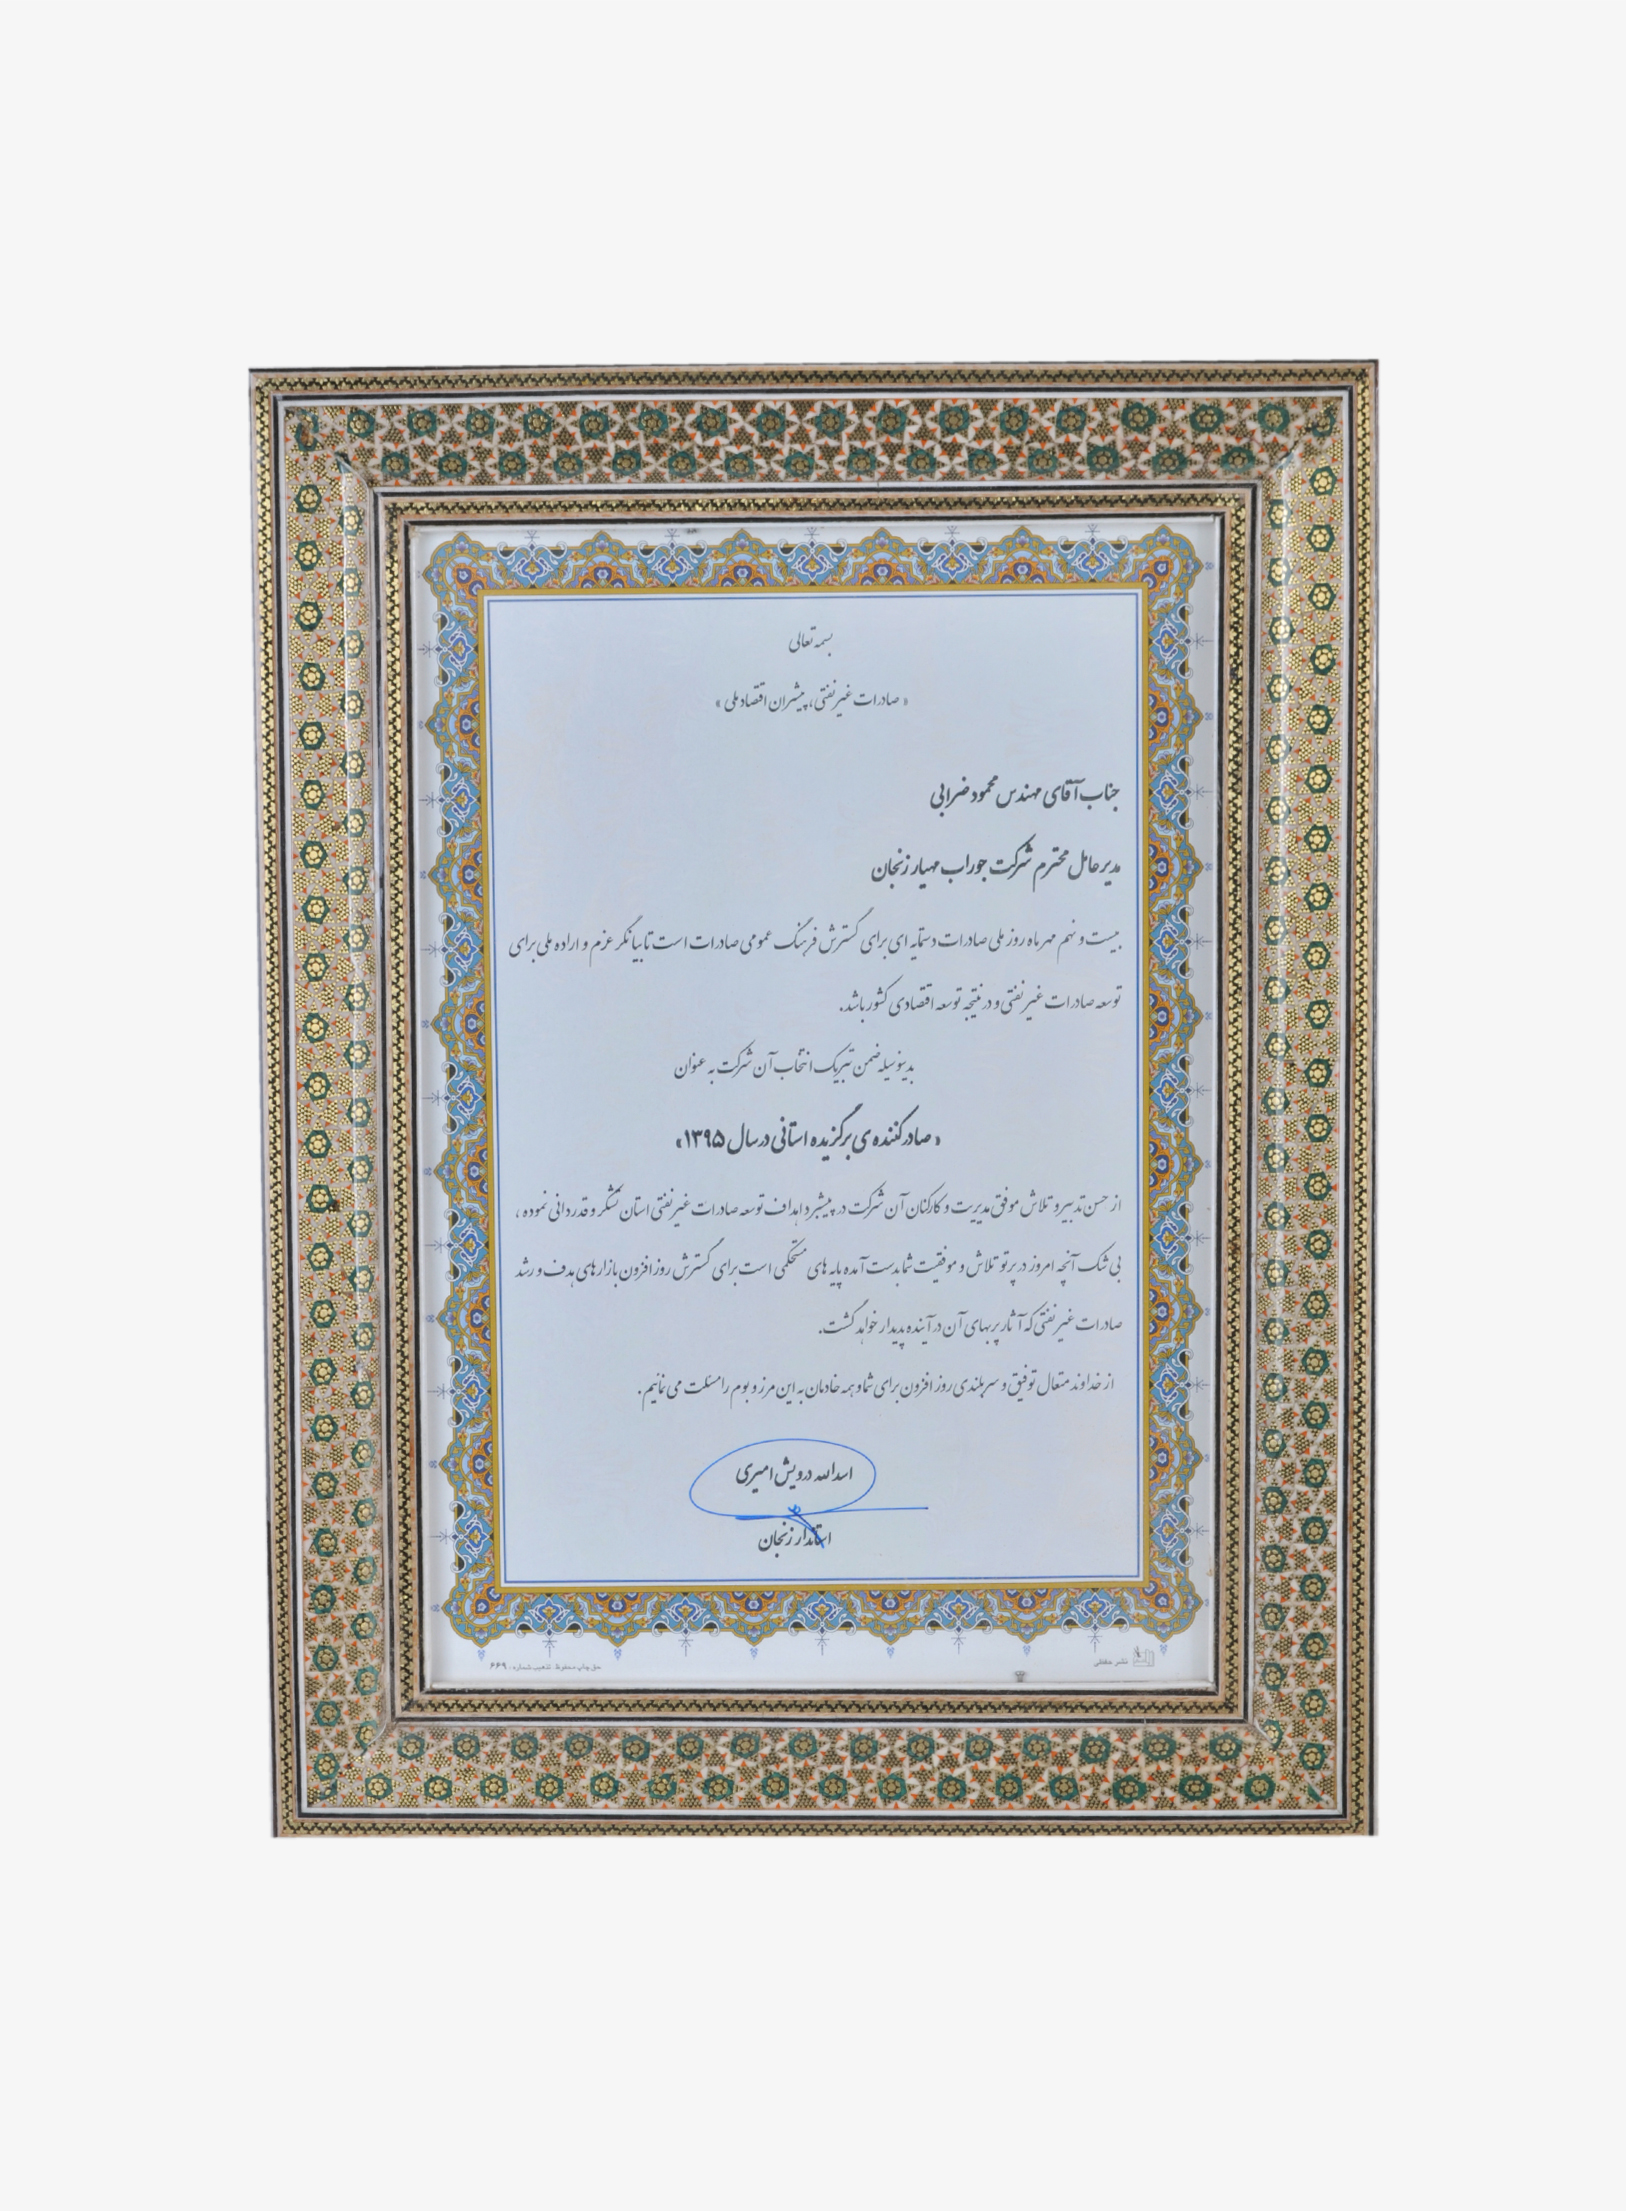 بسمه تعالی
« صادرات غیر نفتی، پیشران اقتصاد ملی »
جناب آقای مهندس محمود ضرابی
مدیر عامل محترم شرکت جوراب مهیار زنجان
بیست و نهم مهر ماه روز ملی صادرات دستمایه ای برای گسترش فرهنگ عمومی صادرات است تا بیانگر عزم و اراده ملی برای
توسعه صادرات غیر نفتی و در نتیجه توسعه اقتصادی کشور باشد.
بدینوسیله ضمن تبریک انتخاب آن شرکت به عنوان
« صادر کننده ی برگزیده استانی در سال ۱۳۹۵»
از حسن تدبیر و تلاش موفق مدیریت و کارکنان آن شرکت در پیشبرد اهداف توسعه صادرات غیر نفتی استان تشکر و قدردانی نموده ،
بی شک آنچه امروز در پرتو تلاش و موفقیت شما بدست آمده پایه های مستحکمی است برای گسترش روز افزون بازار های هدف و رشد
صادرات غیر نفتی که آثار پربهای آن در آینده پدیدار خواهد گشت.
از خداوند متعال توفیق و سربلندی روز افزون برای شما و همه خادمان به این مرز و بوم را مسئلت می نمائیم .
اسدالله درویش امیری
استاندار زنجان
نشر حقانی
حق چاپ محفوظ. تذهیب شماره : ۶۶۹